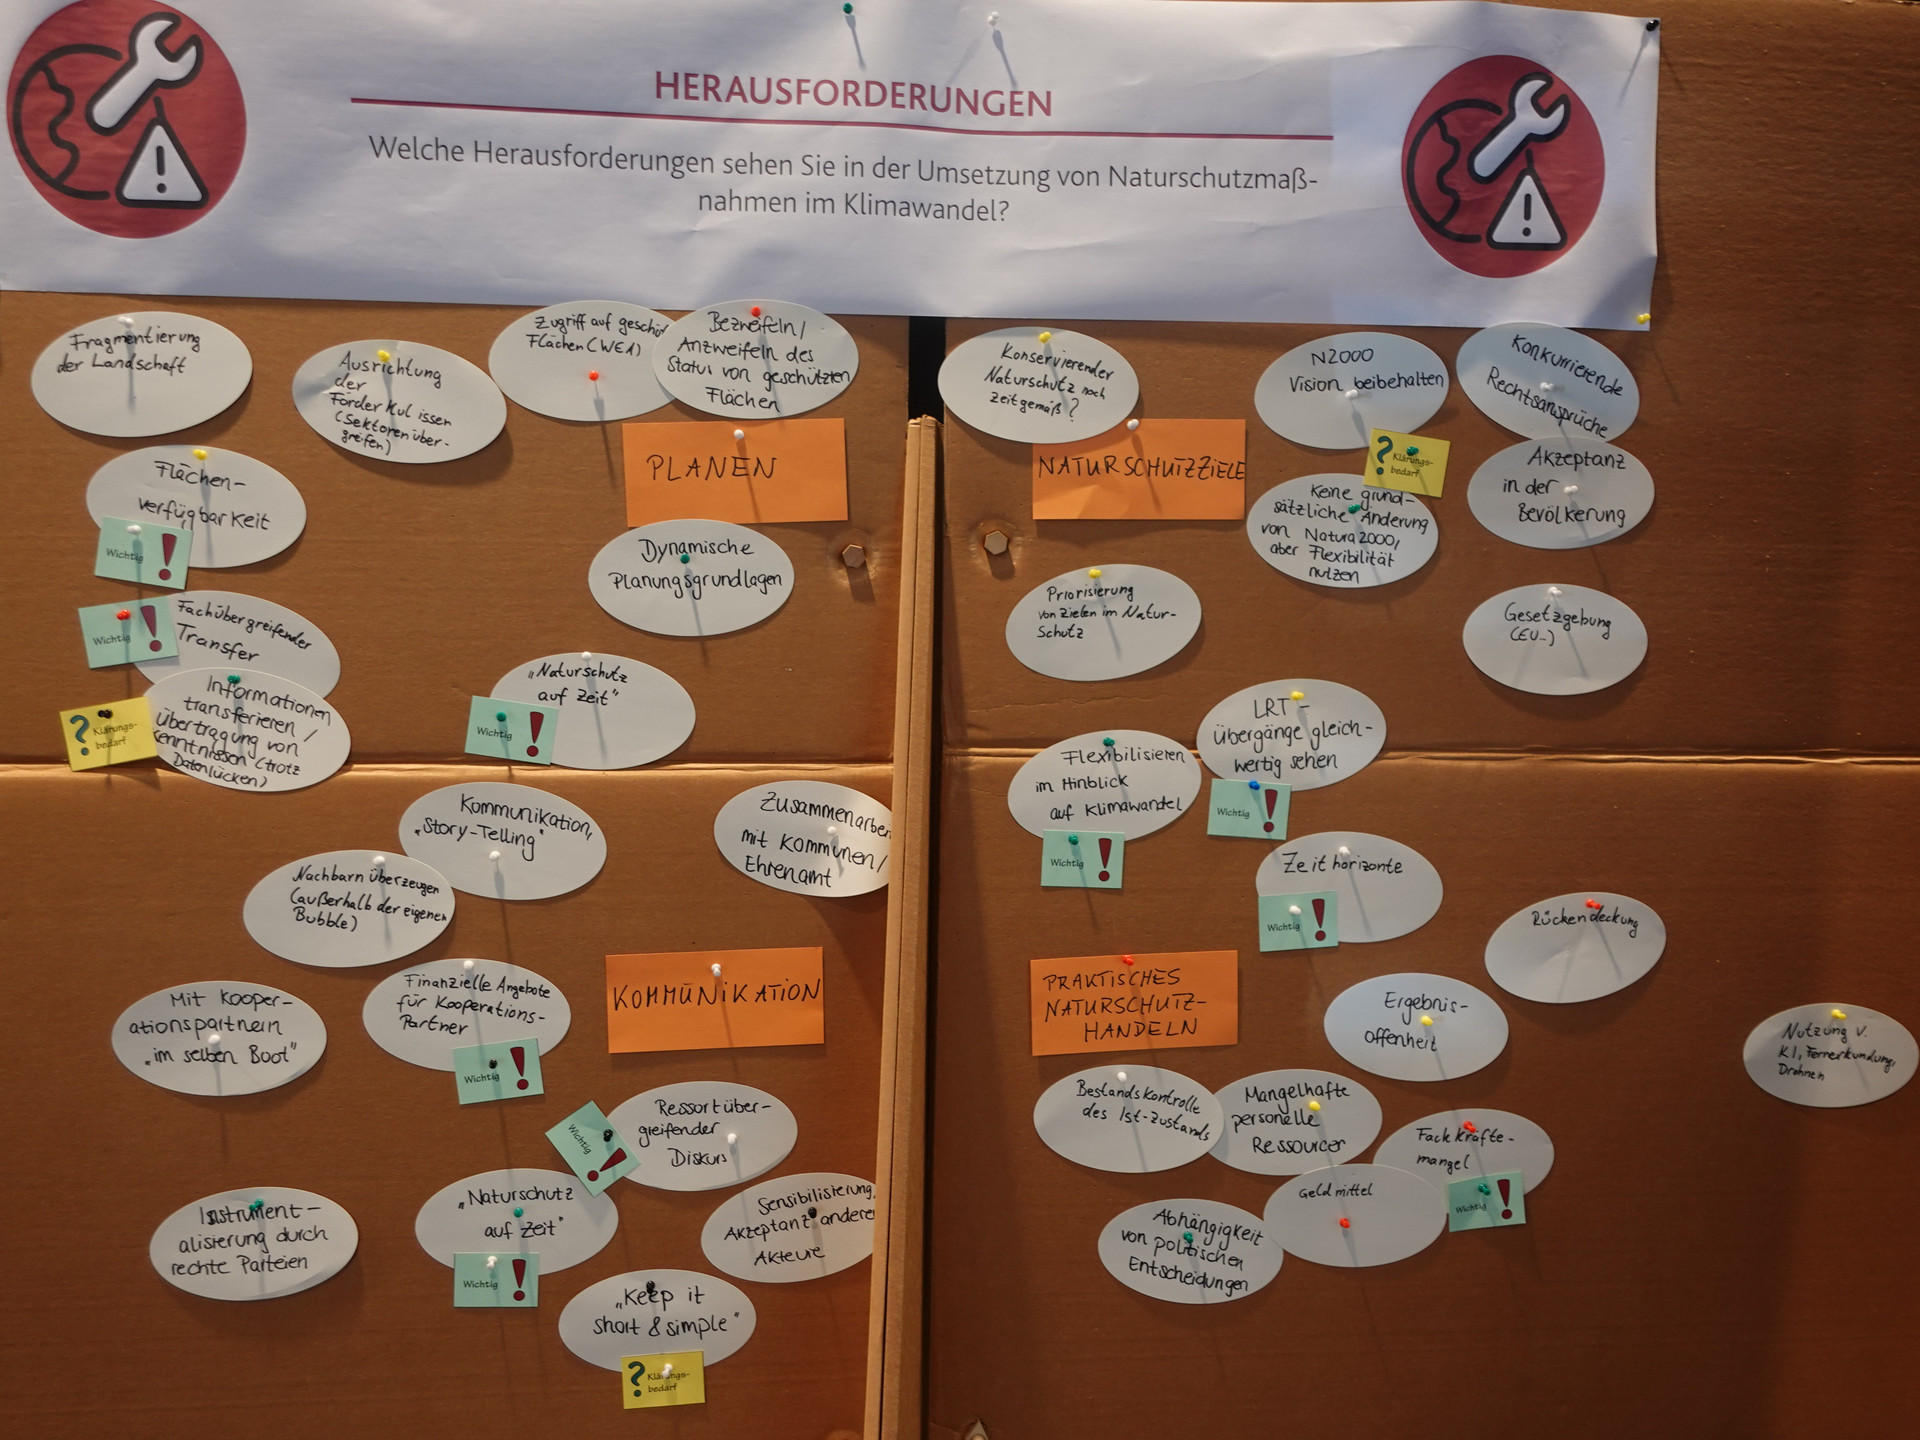 HERAUSFORDERUNGEN
Welche Herausforderungen sehen Sie in der Umsetzung von Naturschutzmaß-
nahmen im Klimawandel?
Fragmentierung
der Landschaft
Ausrichtung
der
Förder Kulissen
(Sektorenüber-
greifen)
Zugriff auf
Flächen (WEA)
Bezweifeln/
Anzweifeln des
Status von geschützten
Flächen
Flächen-
verfügbarkeit
Wichtig !
PLANEN
Dynamische
Planungsgrundlagen
Wichtig !
Fachübergreifender
Transfer
Informationen
transferieren /
Übertragung von
Kenntnissen (trotz
Datenlücken)
? Klärungs-
bedarf
"Naturschutz
auf Zeit"
Wichtig !
Kommunikation,
"Story-Telling"
Zusammenarbei
mit Kommunen/
Ehrenamt
Nachbarn überzeugen
(außerhalb der eigenen
Bubble)
Mit Kooper-
ationspartnern
"im selben Boot"
Finanzielle Angebote
für Kooperations-
Partner
Wichtig !
KOMMUNIKATION
Ressortüber-
greifender
Diskurs
Wichtig !
Instrument-
alisierung durch
rechte Parteien
"Naturschutz
auf Zeit"
Wichtig !
Sensibilisierung,
Akzeptanz anderer
Akteure
"Keep it
short & simple"
? Klärungs-
bedarf
Konservierender
Naturschutz noch
zeitgemäß?
N2000
Vision beibehalten
Konkurrierende
Rechtsansprüche
NATURSCHUTZZIELE
? Klärungs-
bedarf
Keine grund-
sätzliche Änderung
von Natura 2000,
aber Flexibilität
nutzen
Akzeptanz
in der
Bevölkerung
Priorisierung
von Zielen im Natur-
schutz
Gesetzgebung
(EU-)
LRT -
Übergänge gleich-
wertig sehen
Wichtig !
Flexibilisieren
im Hinblick
auf Klimawandel
Wichtig !
Zeithorizonte
Wichtig !
Rückendeckung
PRAKTISCHES
NATURSCHUTZ-
HANDELN
Ergebnis-
offenheit
Nutzung v.
KI, Fernerkundung,
Drohnen
Bestandskontrolle
des Ist-Zustands
Mangelhafte
personelle
Ressourcen
Fachkräfte-
mangel
Wichtig !
Geldmittel
Abhängigkeit
von politischen
Entscheidungen